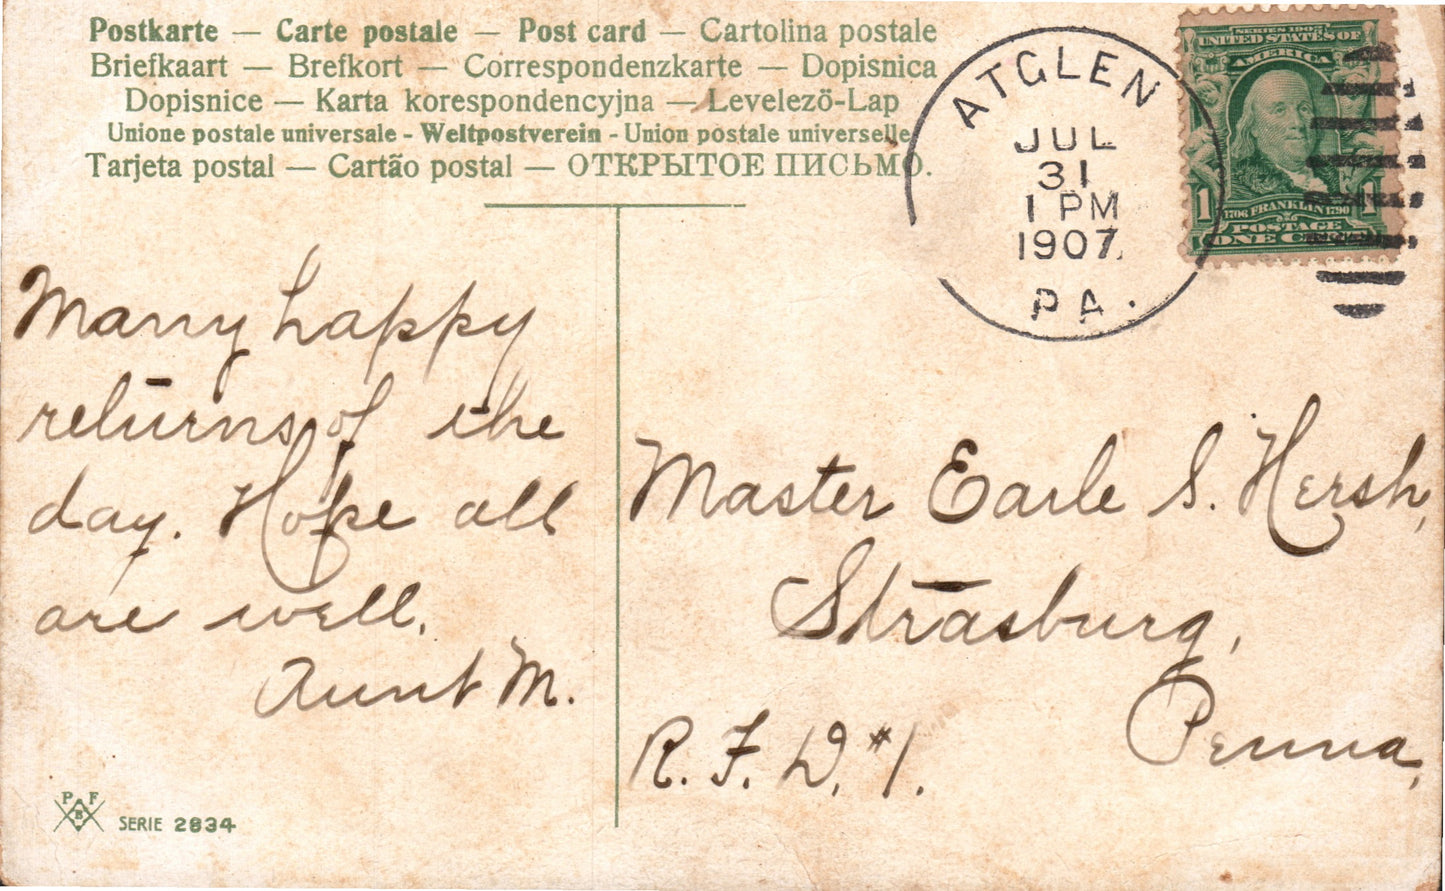 Postkarte — Carte postale — Post card — Cartolina postale
Briefkaart — Brefkort — Correspondenzkarte — Dopisnica
Dopisnice — Karta korespondencyjna — Levelezö-Lap
Unione postale universale - Weltpostverein - Union postale universelle
Tarjeta postal — Cartão postal — ОТКРЫТОЕ ПИСЬМО.
ATGLEN
JUL
31
1 PM
1907.
PA.
SERIES 1902
UNITED STATES OF
AMERICA
1 1
1706 FRANKLIN 1790
POSTAGE
ONE CENT
Many happy
returns of the
day. Hope all
are well.
Aunt M.
Master Earle S. Hersh,
Strasburg,
Penna,
R. F. D. #1.
P F
B
SERIE 2834